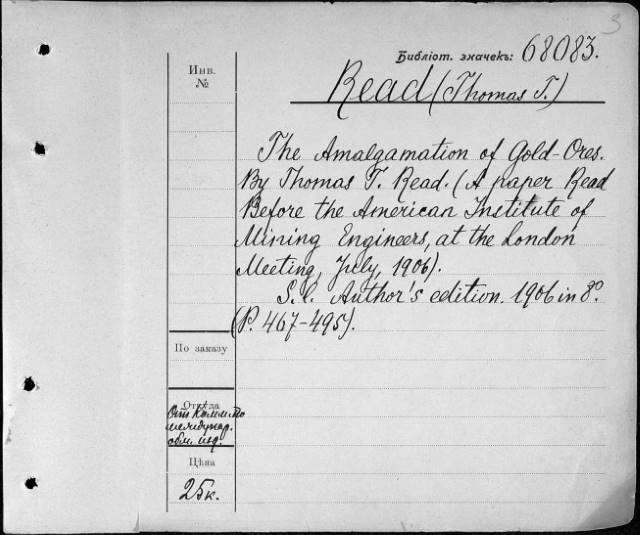 3
Библіот. значекъ: 68083.
Инв.
№
Read (Thomas T.)
The Amalgamation of Gold-Ores.
By Thomas T. Read. (A paper Read
Before the American Institute of
Mining Engineers, at the London
Meeting, July, 1906).
S.l. Author's edition. 1906 in 8°.
(P. 467-495).
По заказу
Откуда
От Коммис
междунар.
обм. изд.
Цѣна
25к.